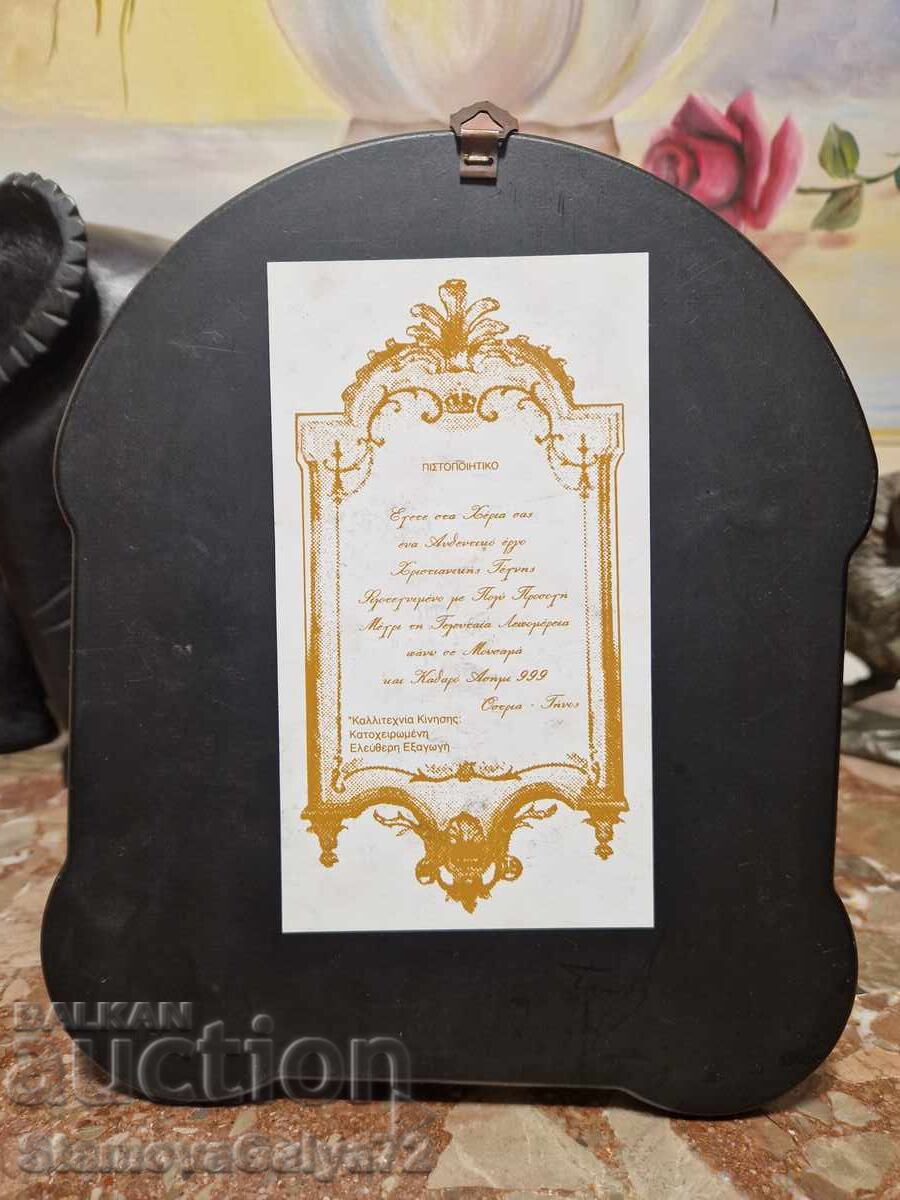 ΠΙΣΤΟΠΟΙΗΤΙΚΟ
Εχετε στα Χέρια σας
ένα Αυθεντικό έργο
Χριστιανικής Τέχνης
Φιλοτεχνιμένο με Πολύ Προσοχή
Μέχρι τη Τελευταία Λεπτομέρεια
πάνω σε Μουσαμά
και Καθαρό Ασήμι 999
Οστρια - Τήνος
"Καλλιτεχνία Κίνησης:
Κατοχειρωμένη
Ελεύθερη Εξαγωγή
BALKAN
auction
StamovaGalya72